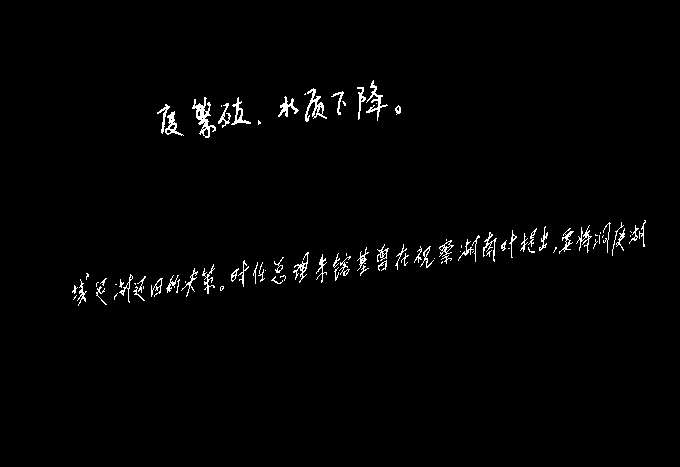 度繁殖,水质下降。
域退湖还田的决策。时任总理朱镕基曾在视察湖南时提出,要将洞庭湖